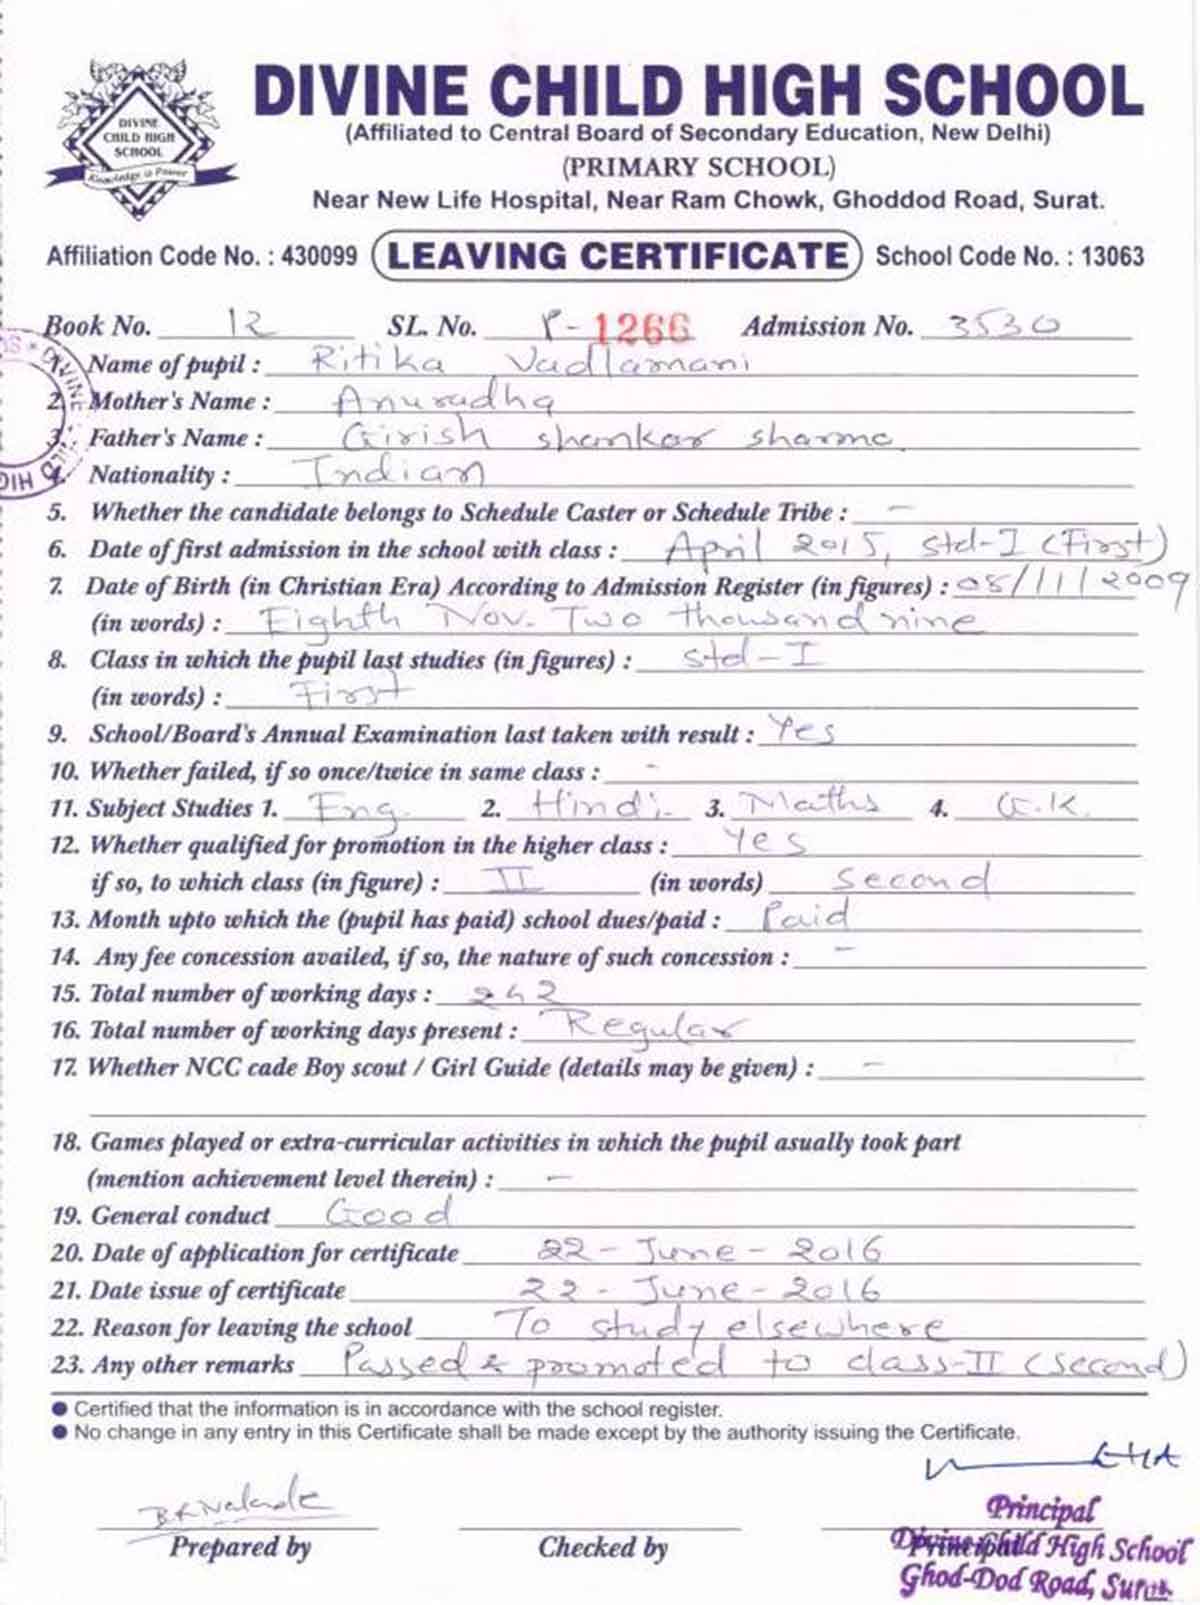 DIVINE CHILD HIGH SCHOOL
DIVINE
CHILD HIGH
SCHOOL
Knowledge is Power
(Affiliated to Central Board of Secondary Education, New Delhi)
(PRIMARY SCHOOL)
Near New Life Hospital, Near Ram Chowk, Ghoddod Road, Surat.
Affiliation Code No. : 430099 LEAVING CERTIFICATE School Code No. : 13063
Book No. 12 SL. No. P-1266 Admission No. 3530
1. Name of pupil : Ritika Vadlamani
2. Mother's Name : Anuradha
3. Father's Name : Girish shankar sharma
4. Nationality : Indian
5. Whether the candidate belongs to Schedule Caster or Schedule Tribe : -
6. Date of first admission in the school with class : April 2015, Std-I (First)
7. Date of Birth (in Christian Era) According to Admission Register (in figures) : 08/11/2009
(in words) : Eighth Nov. Two thousand nine
8. Class in which the pupil last studies (in figures) : Std-I
(in words) : First
9. School/Board's Annual Examination last taken with result : Yes
10. Whether failed, if so once/twice in same class : -
11. Subject Studies 1. Eng. 2. Hindi. 3. Maths 4. G.K.
12. Whether qualified for promotion in the higher class : Yes
if so, to which class (in figure) : II (in words) Second
13. Month upto which the (pupil has paid) school dues/paid : Paid
14. Any fee concession availed, if so, the nature of such concession : -
15. Total number of working days : 242
16. Total number of working days present : Regular
17. Whether NCC cade Boy scout / Girl Guide (details may be given) : -
18. Games played or extra-curricular activities in which the pupil asually took part
(mention achievement level therein) : -
19. General conduct Good
20. Date of application for certificate 22-June-2016
21. Date issue of certificate 22-June-2016
22. Reason for leaving the school To study elsewhere
23. Any other remarks Passed & promoted to class-II (Second)
● Certified that the information is in accordance with the school register.
● No change in any entry in this Certificate shall be made except by the authority issuing the Certificate.
Prepared by Checked by Principal
Principal
Divine Child High School
Ghod-Dod Road, Surat.